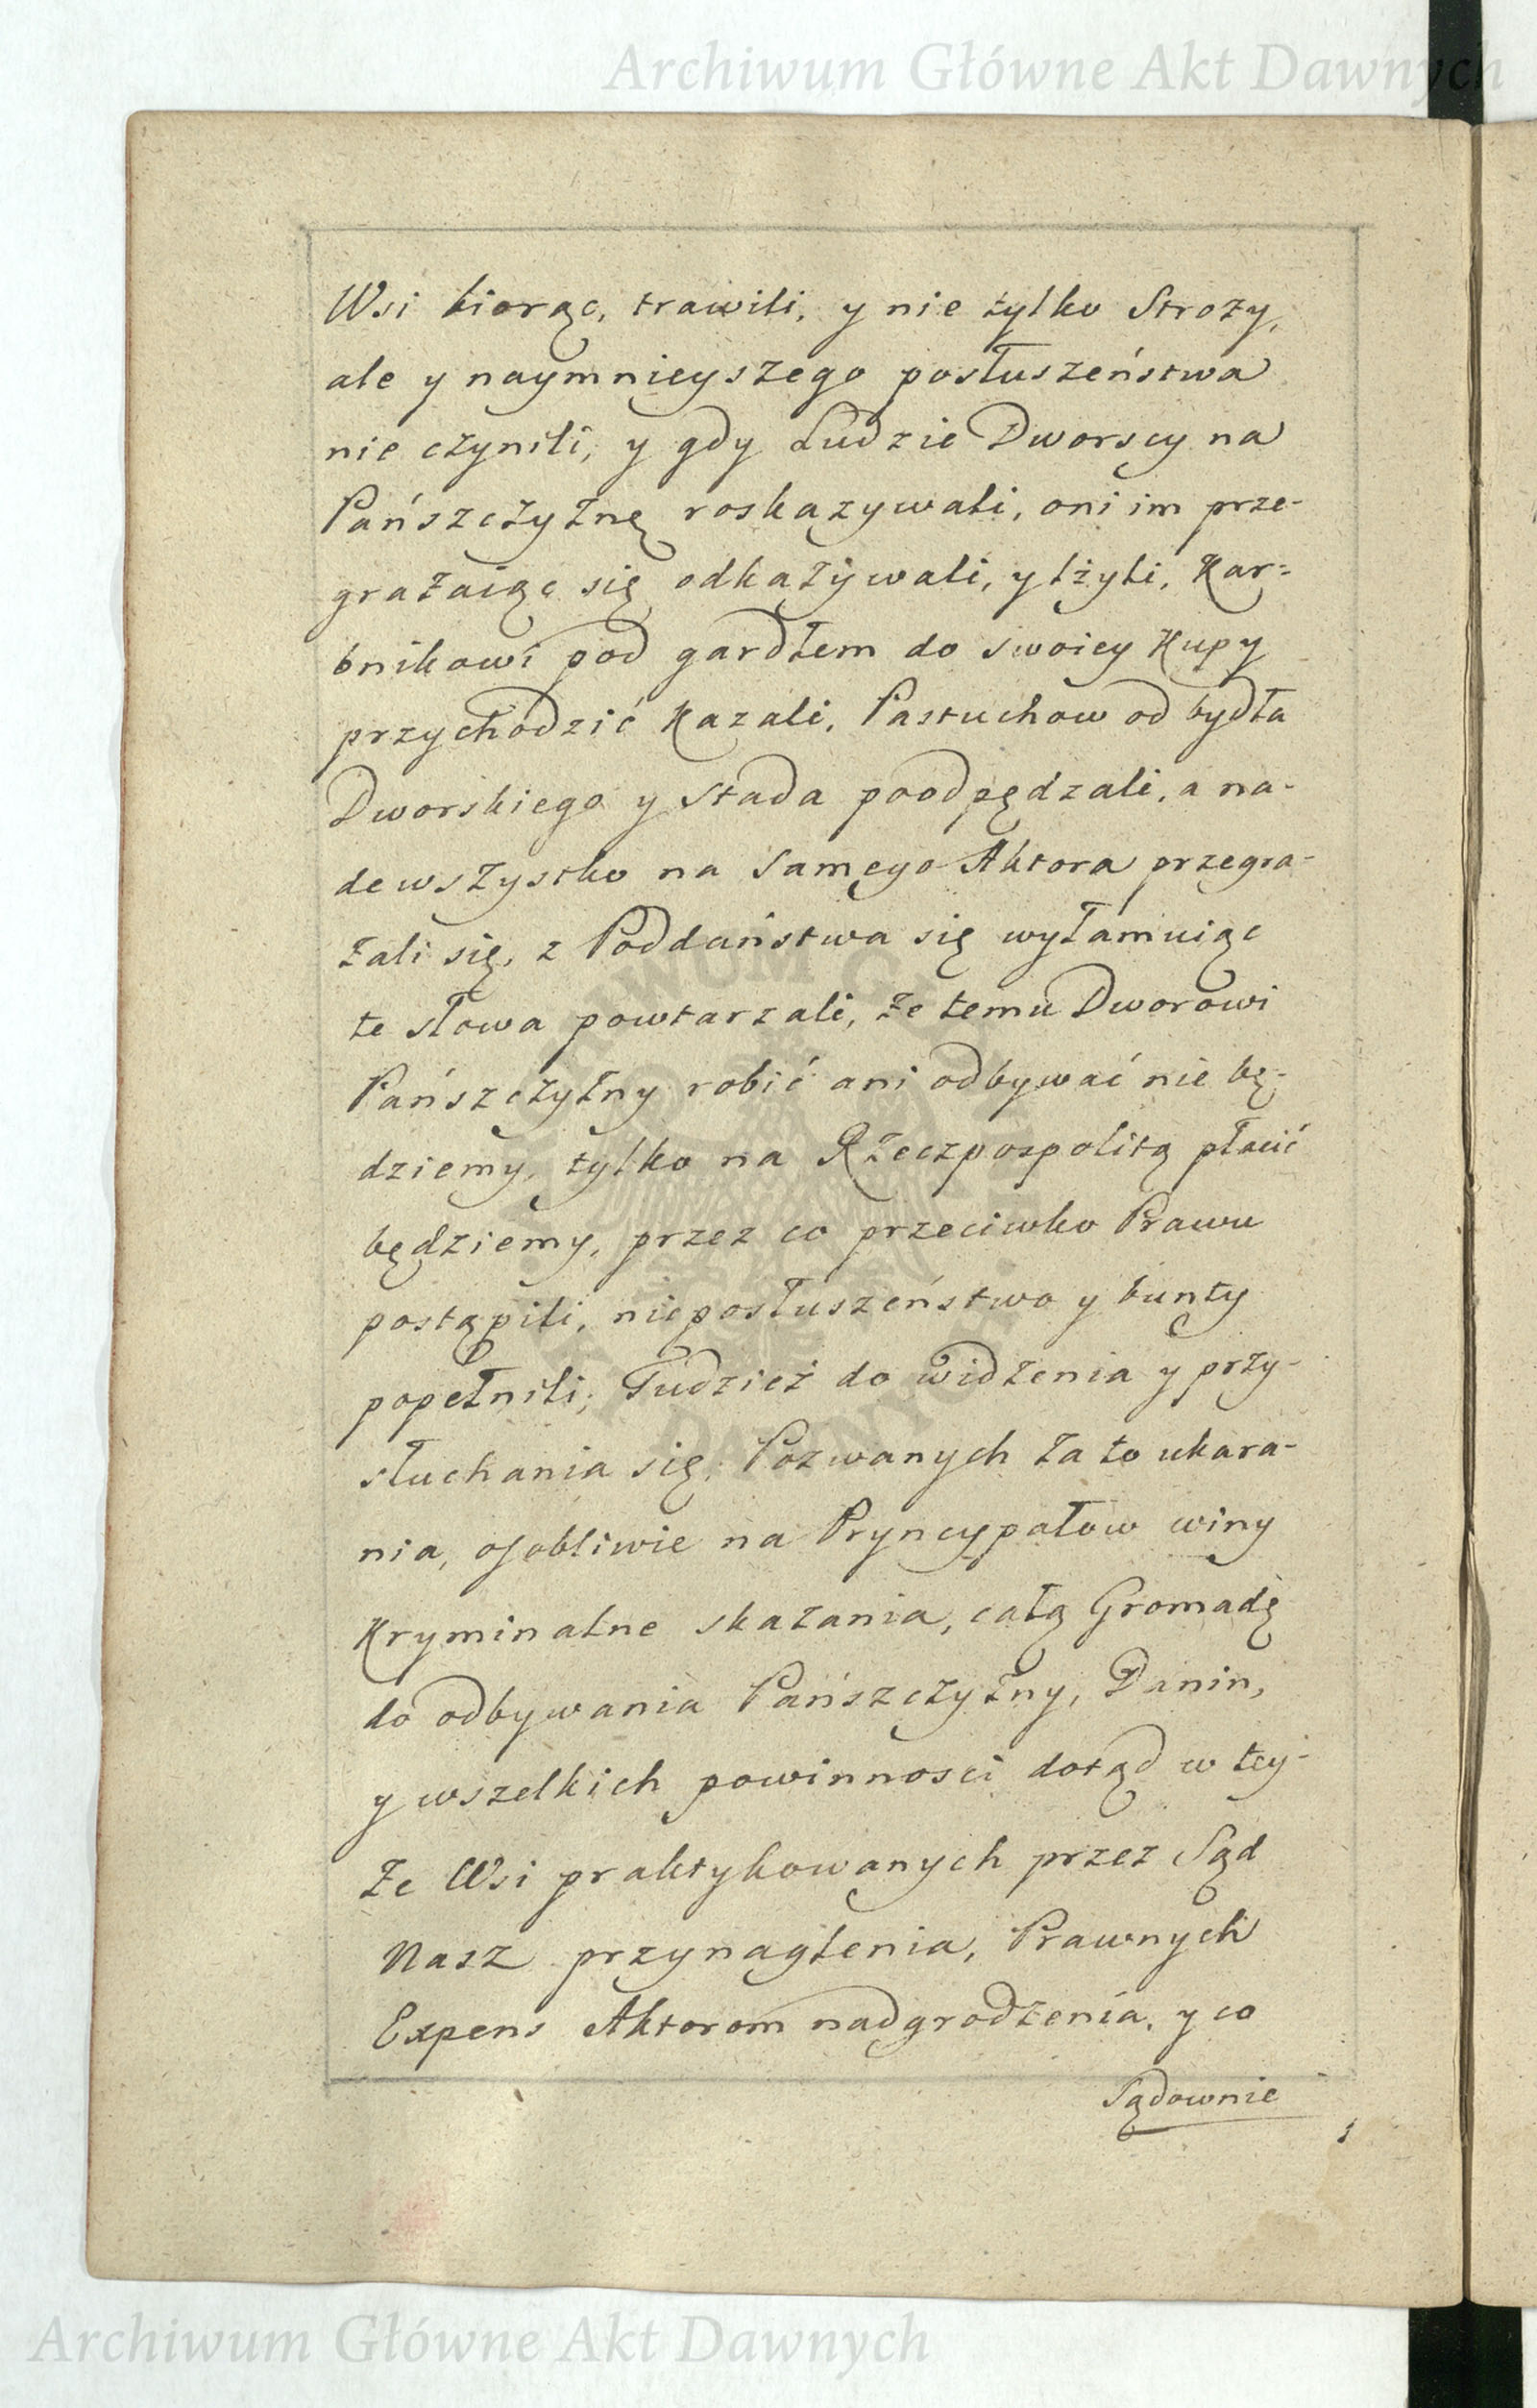 Archiwum Główne Akt Dawnych
Wsi biorąc, trawili, y nie tylko Stroży,
ale y naymnieyszego posłuszeństwa
nie czynili, y gdy Ludzie Dworscy na
Pańszczyżnę roskazywali, oni im prze-
grażaiąc się odkażywali, y lżyli, Kar=
bnikowi pod gardłem do swoiey Kupy
przychodzić Kazali, Pastuchow od bydła
Dworskiego y Stada poodpędzali, a na-
dewszystko na samego Aktora przegra-
żali się, z Poddaństwa się wyłamuiąc
te słowa powtarzali, że temu Dworowi
Pańszczyżny robić ani odbywać nie bę-
dziemy, tylko na Rzeczpospolitą płacić
będziemy, przez co przeciwko Prawu
postąpili, nieposłuszeństwo y bunty
popełnili; Tudzież do widzenia y przy-
słuchania się, Pozwanych za to ukara-
nia, osobliwie na Pryncypałow winy
Kryminalne skazania, całą Gromadę
do odbywania Pańszczyżny, Danin,
y wszelkich powinnosci dotąd w tey-
że Wsi praktykowanych przez Sąd
Nasz przynaglenia, Prawnych
Expens Aktorom nadgrodzenia, y co
Sądownie
Archiwum Główne Akt Dawnych